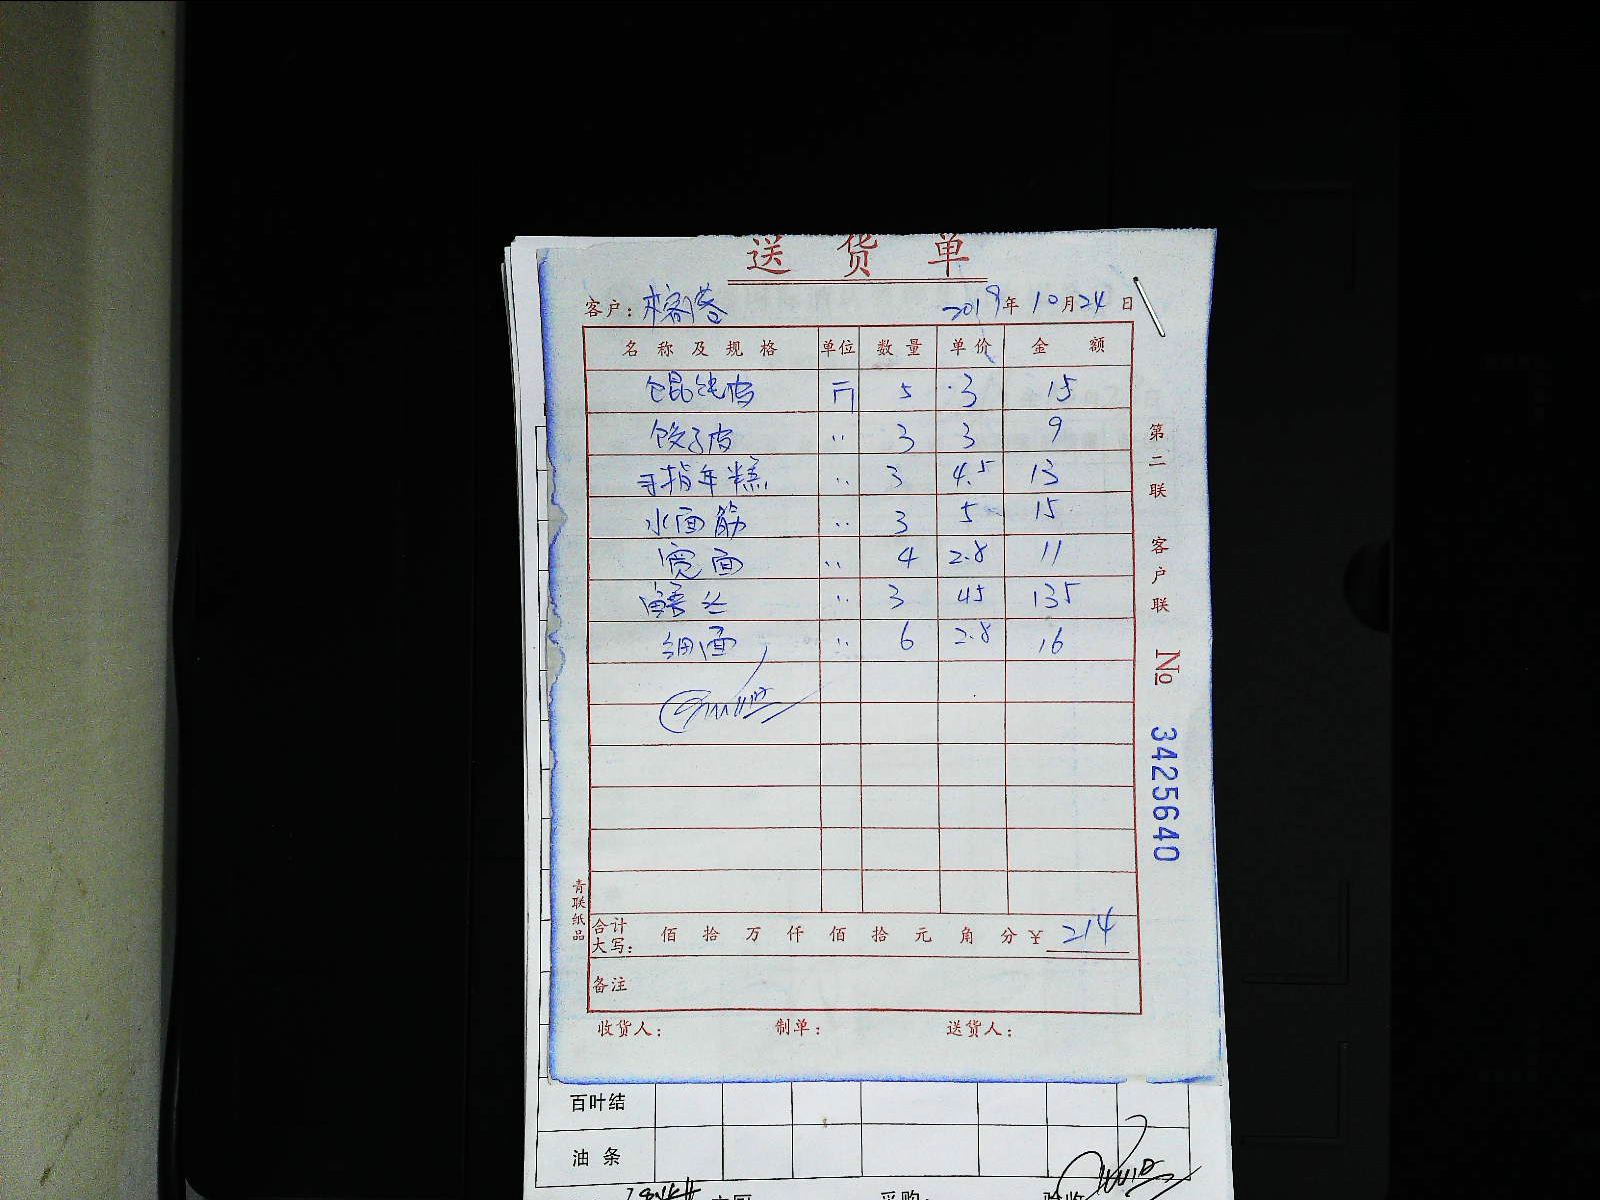 送货单
客户: 2019年10月24日
名称及规格 单位 数量 单价 金额
馄饨皮 斤 5 3 15
饺子皮 〃 3 3 9
手指年糕 〃 3 4.5 13
水面筋 〃 3 5 15
宽面 〃 4 2.8 11
〃 3 45 135
细面 〃 6 2.8 16
合计大写: 佰拾万仟佰拾元角分¥ 214
备注
收货人: 制单: 送货人:
第二联 客户联
No 3425640
青联纸品
百叶结
油条
采购: